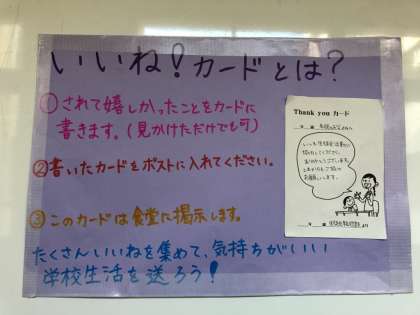 いいね！カードとは？
①されて嬉しかったことをカードに
書きます。（見かけただけでも可）
②書いたカードをポストに入れてください。
③このカードは食堂に掲示します。
たくさんいいねを集めて、気持ちがいい
学校生活を送ろう！
Thank you カード